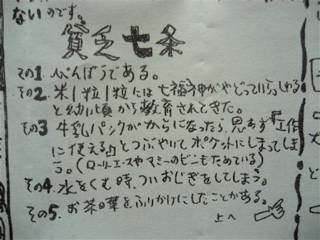 ないのです。
貧乏七条
その1. びんぼうである。
その2. 米1粒1粒には七福神がやどっていらっしゃる
と幼い頃から教育されてきた。
その3 牛乳パックがからになったら、思わず『工作
に使える』とつぶやいてポケットにしまってしま
う。(ローリーエースやマミーのビンもためている)
その4. 水をくむ時、ついおじぎをしてしまう。
その5. お茶の葉をふりかけにしたことがある。
上へ